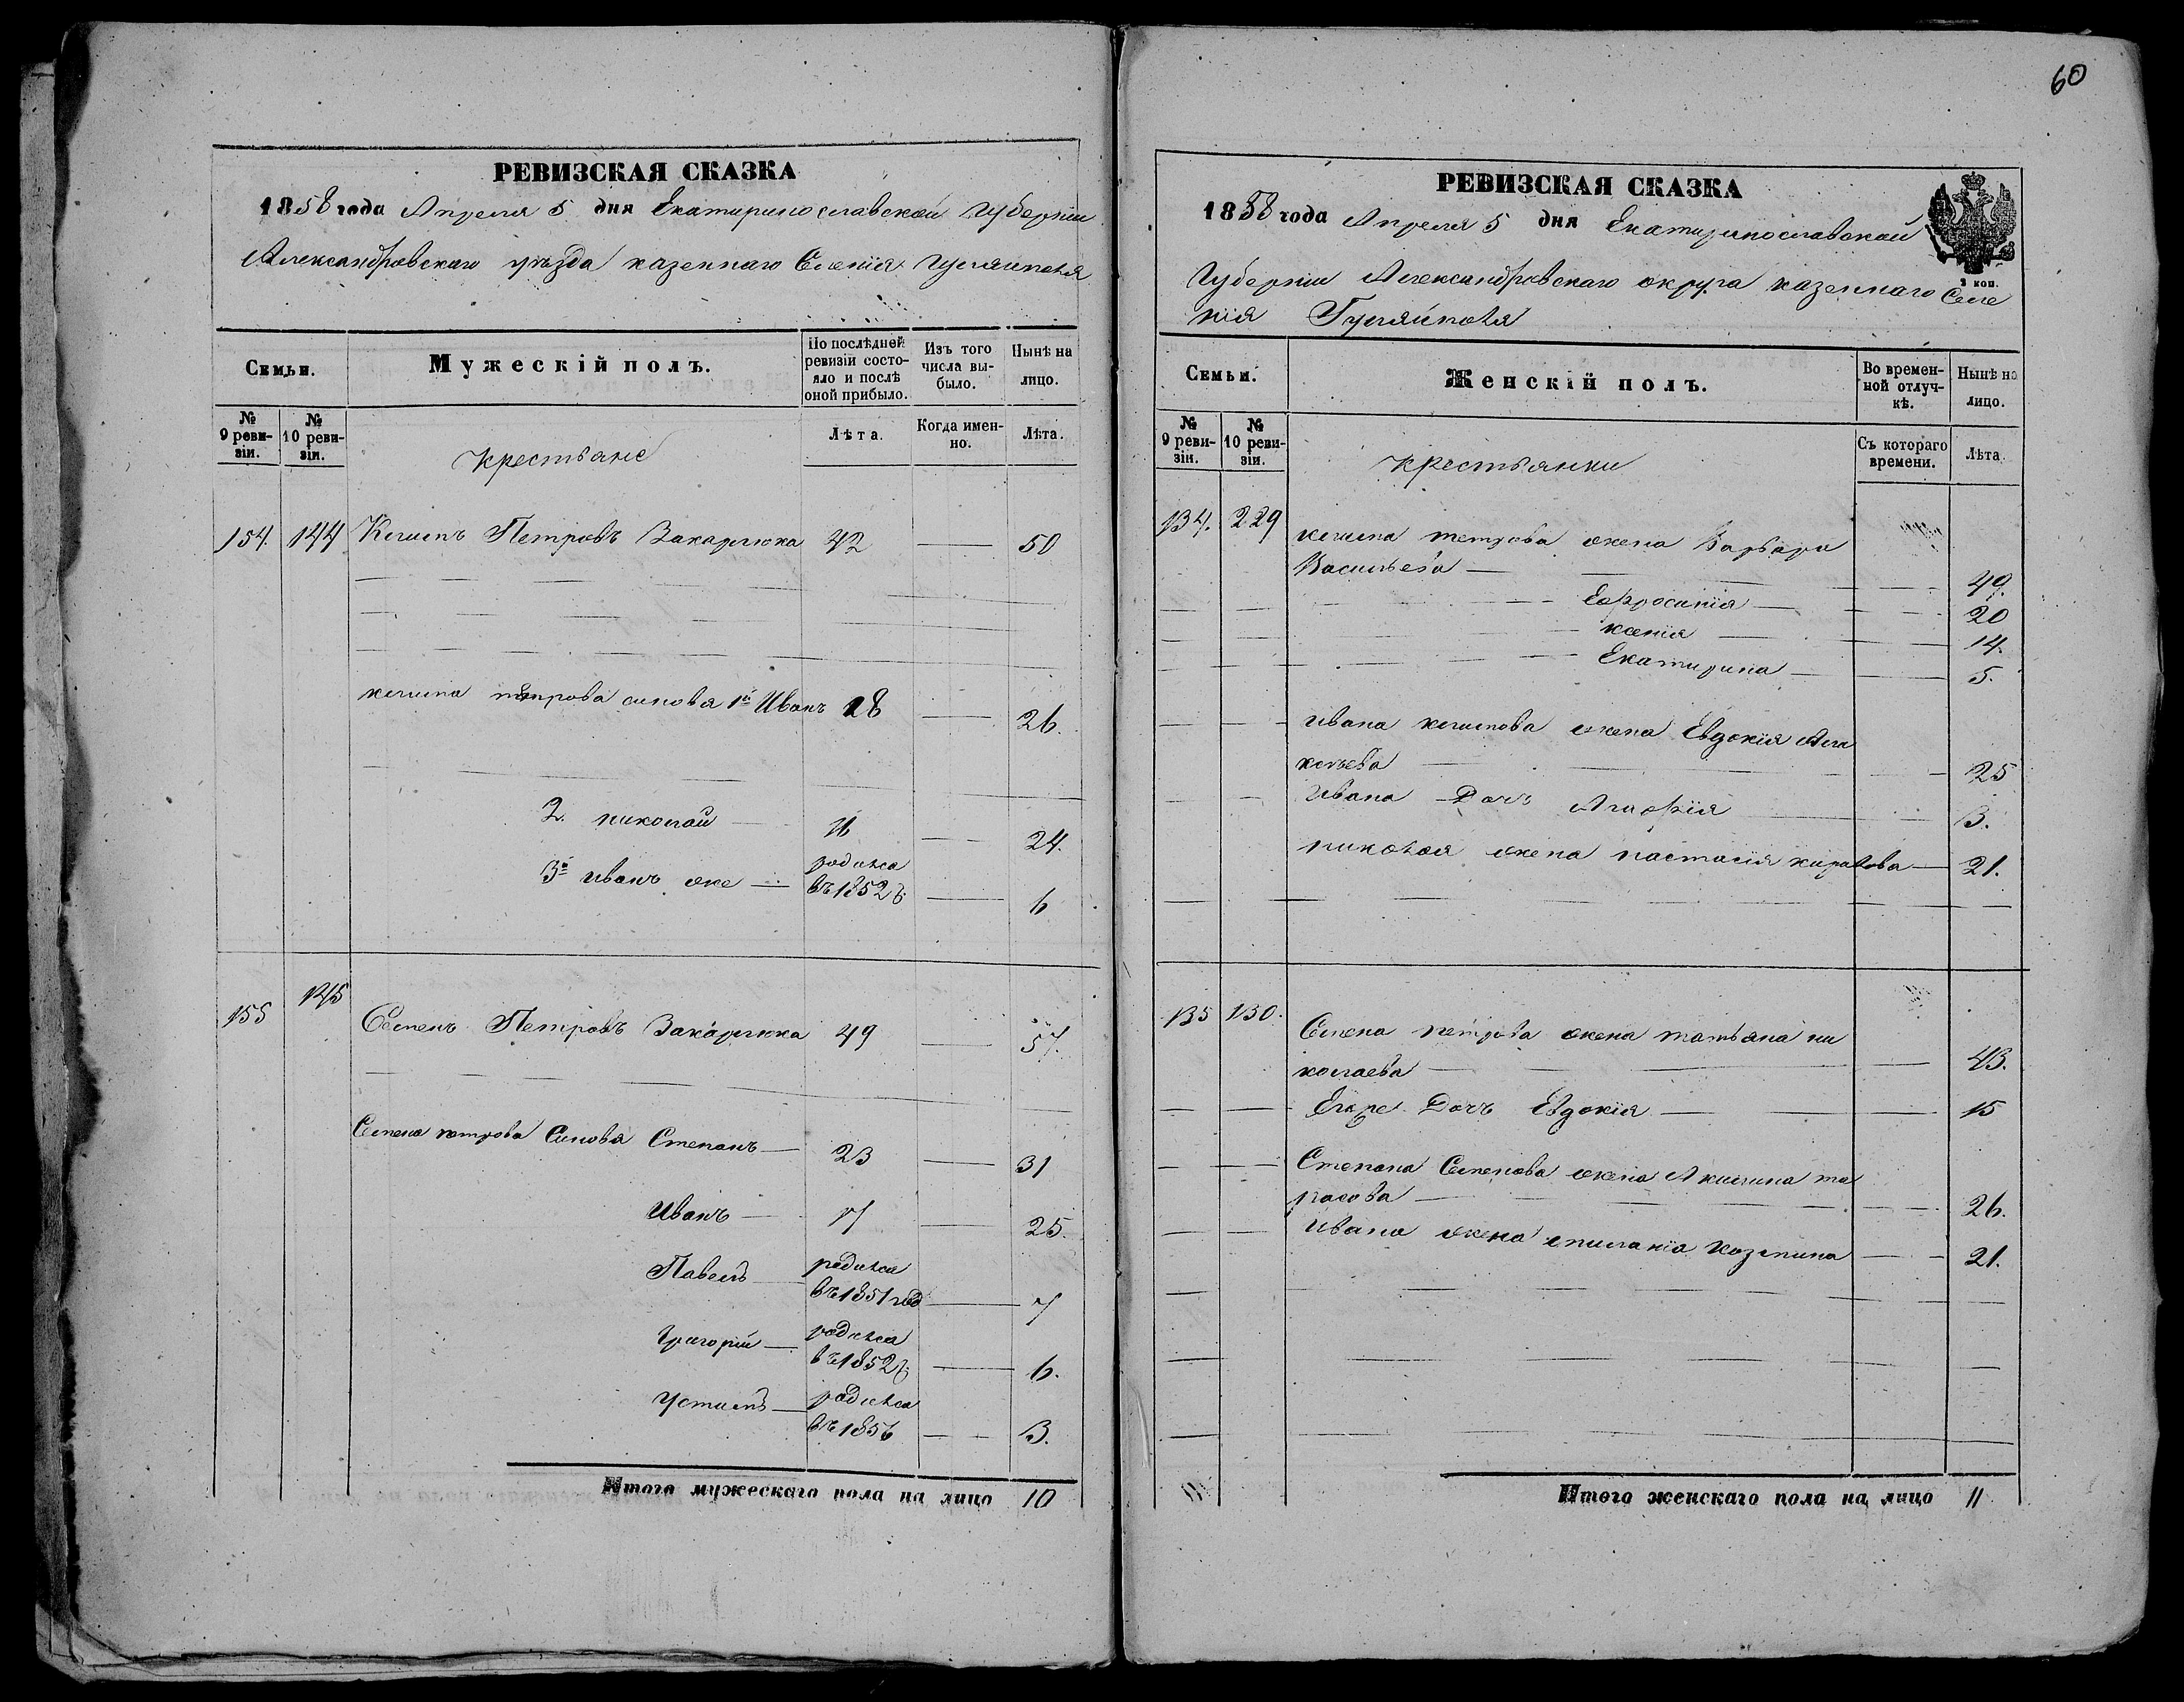 60
РЕВИЗСКАЯ СКАЗКА
1858 года Апреля 5 дня Екатеринославской Губернии
Александровского уѣзда казеннаго Селенія Гуляйполя
Семьи.
Мужескій полъ.
По послѣдней ревизіи состояло и послѣ оной прибыло.
Изъ того числа выбыло.
Нынѣ на лицо.
№ 9 ревизіи.
№ 10 ревизіи.
Крестьяне
Лѣта.
Когда именно.
Лѣта.
154. 144 Климъ Петровъ Закарлюка 42 — 50
климa петрова синовя 1й Иванъ 18 — 26.
2. николай — 16 — 24.
3й иванъ же — родился въ 1852 г. — 6
155 145 Семенъ Петровъ Закарлюка 49 — 57.
Семена петрова Синовя Степанъ — 23 — 31
Иванъ — 17 — 25.
Павелъ — родился въ 1851 год — 7
Григорій — родился въ 1852 г. — 6.
Устимъ — родился въ 1856 — 3.
Итого мужескаго пола на лицо 10
РЕВИЗСКАЯ СКАЗКА
1858 года Апреля 5 дня Екатеринославской
2 коп.
Губерніи Александровскаго округа казеннаго Селе
нія Гуляйполя
Семьи.
Женскій полъ.
Во временной отлучкѣ.
Нынѣ на лицо.
№ 9 ревизіи.
№ 10 ревизіи.
крестьянки
Съ котораго времени.
Лѣта.
134. 229 климa петрова жена Варвара
Васильева — 49.
Ефросинія — 20
ксенія — 14.
Екатирина — 5.
ивана климова жена Евдокія Але
ксѣева — 25
Ивана Дочъ Агафія — 3.
николая жена настасія — 21.
135 130. Семена петрова жена татьяна ни
колаева — 43.
Егоже Дочъ Евдокія — 15
Степана Семенова жена Акилина та
расова — 26.
ивана жена — 21.
Итого женскаго пола на лицо 11